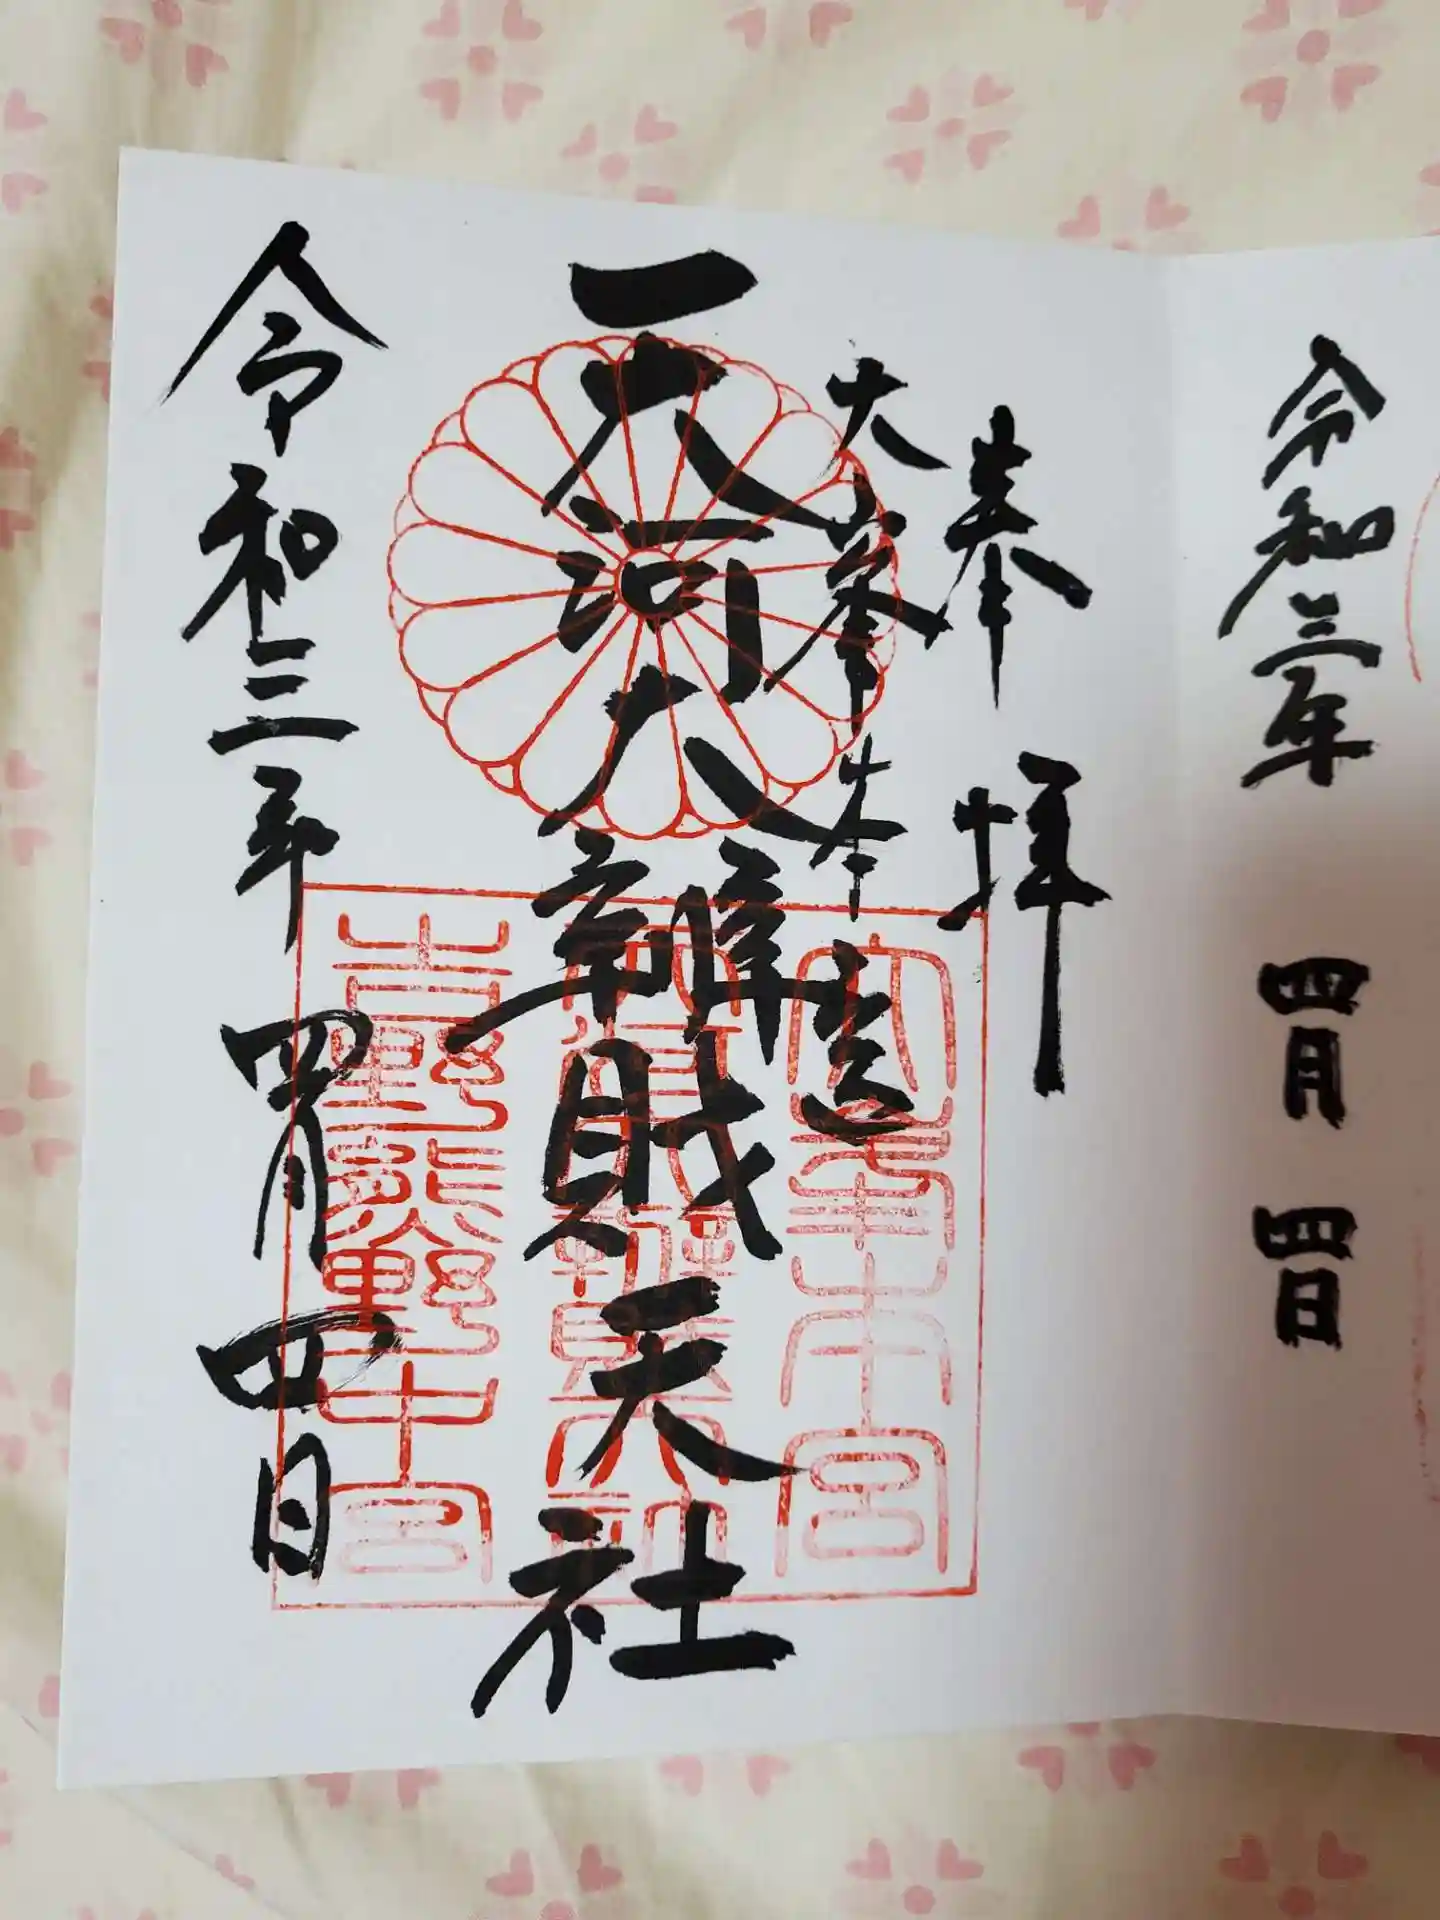 令和三年 四月 四日
奉拝
大峯本宮
天河大辨財天社
令和三年四月四日
大峯本宮
吉野熊野中宮